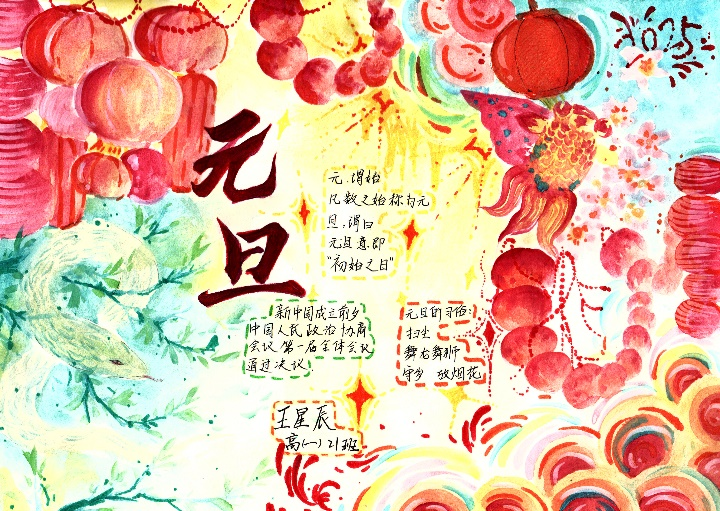 2025
元旦
元,谓始
凡数之始称为元
旦,谓日
元旦意即
"初始之日"
新中国成立前夕
中国人民政治协商
会议第一届全体会议
通过决议
元旦的习俗:
扫尘
舞龙舞狮
守岁 放烟花
王星辰
高(一)21班